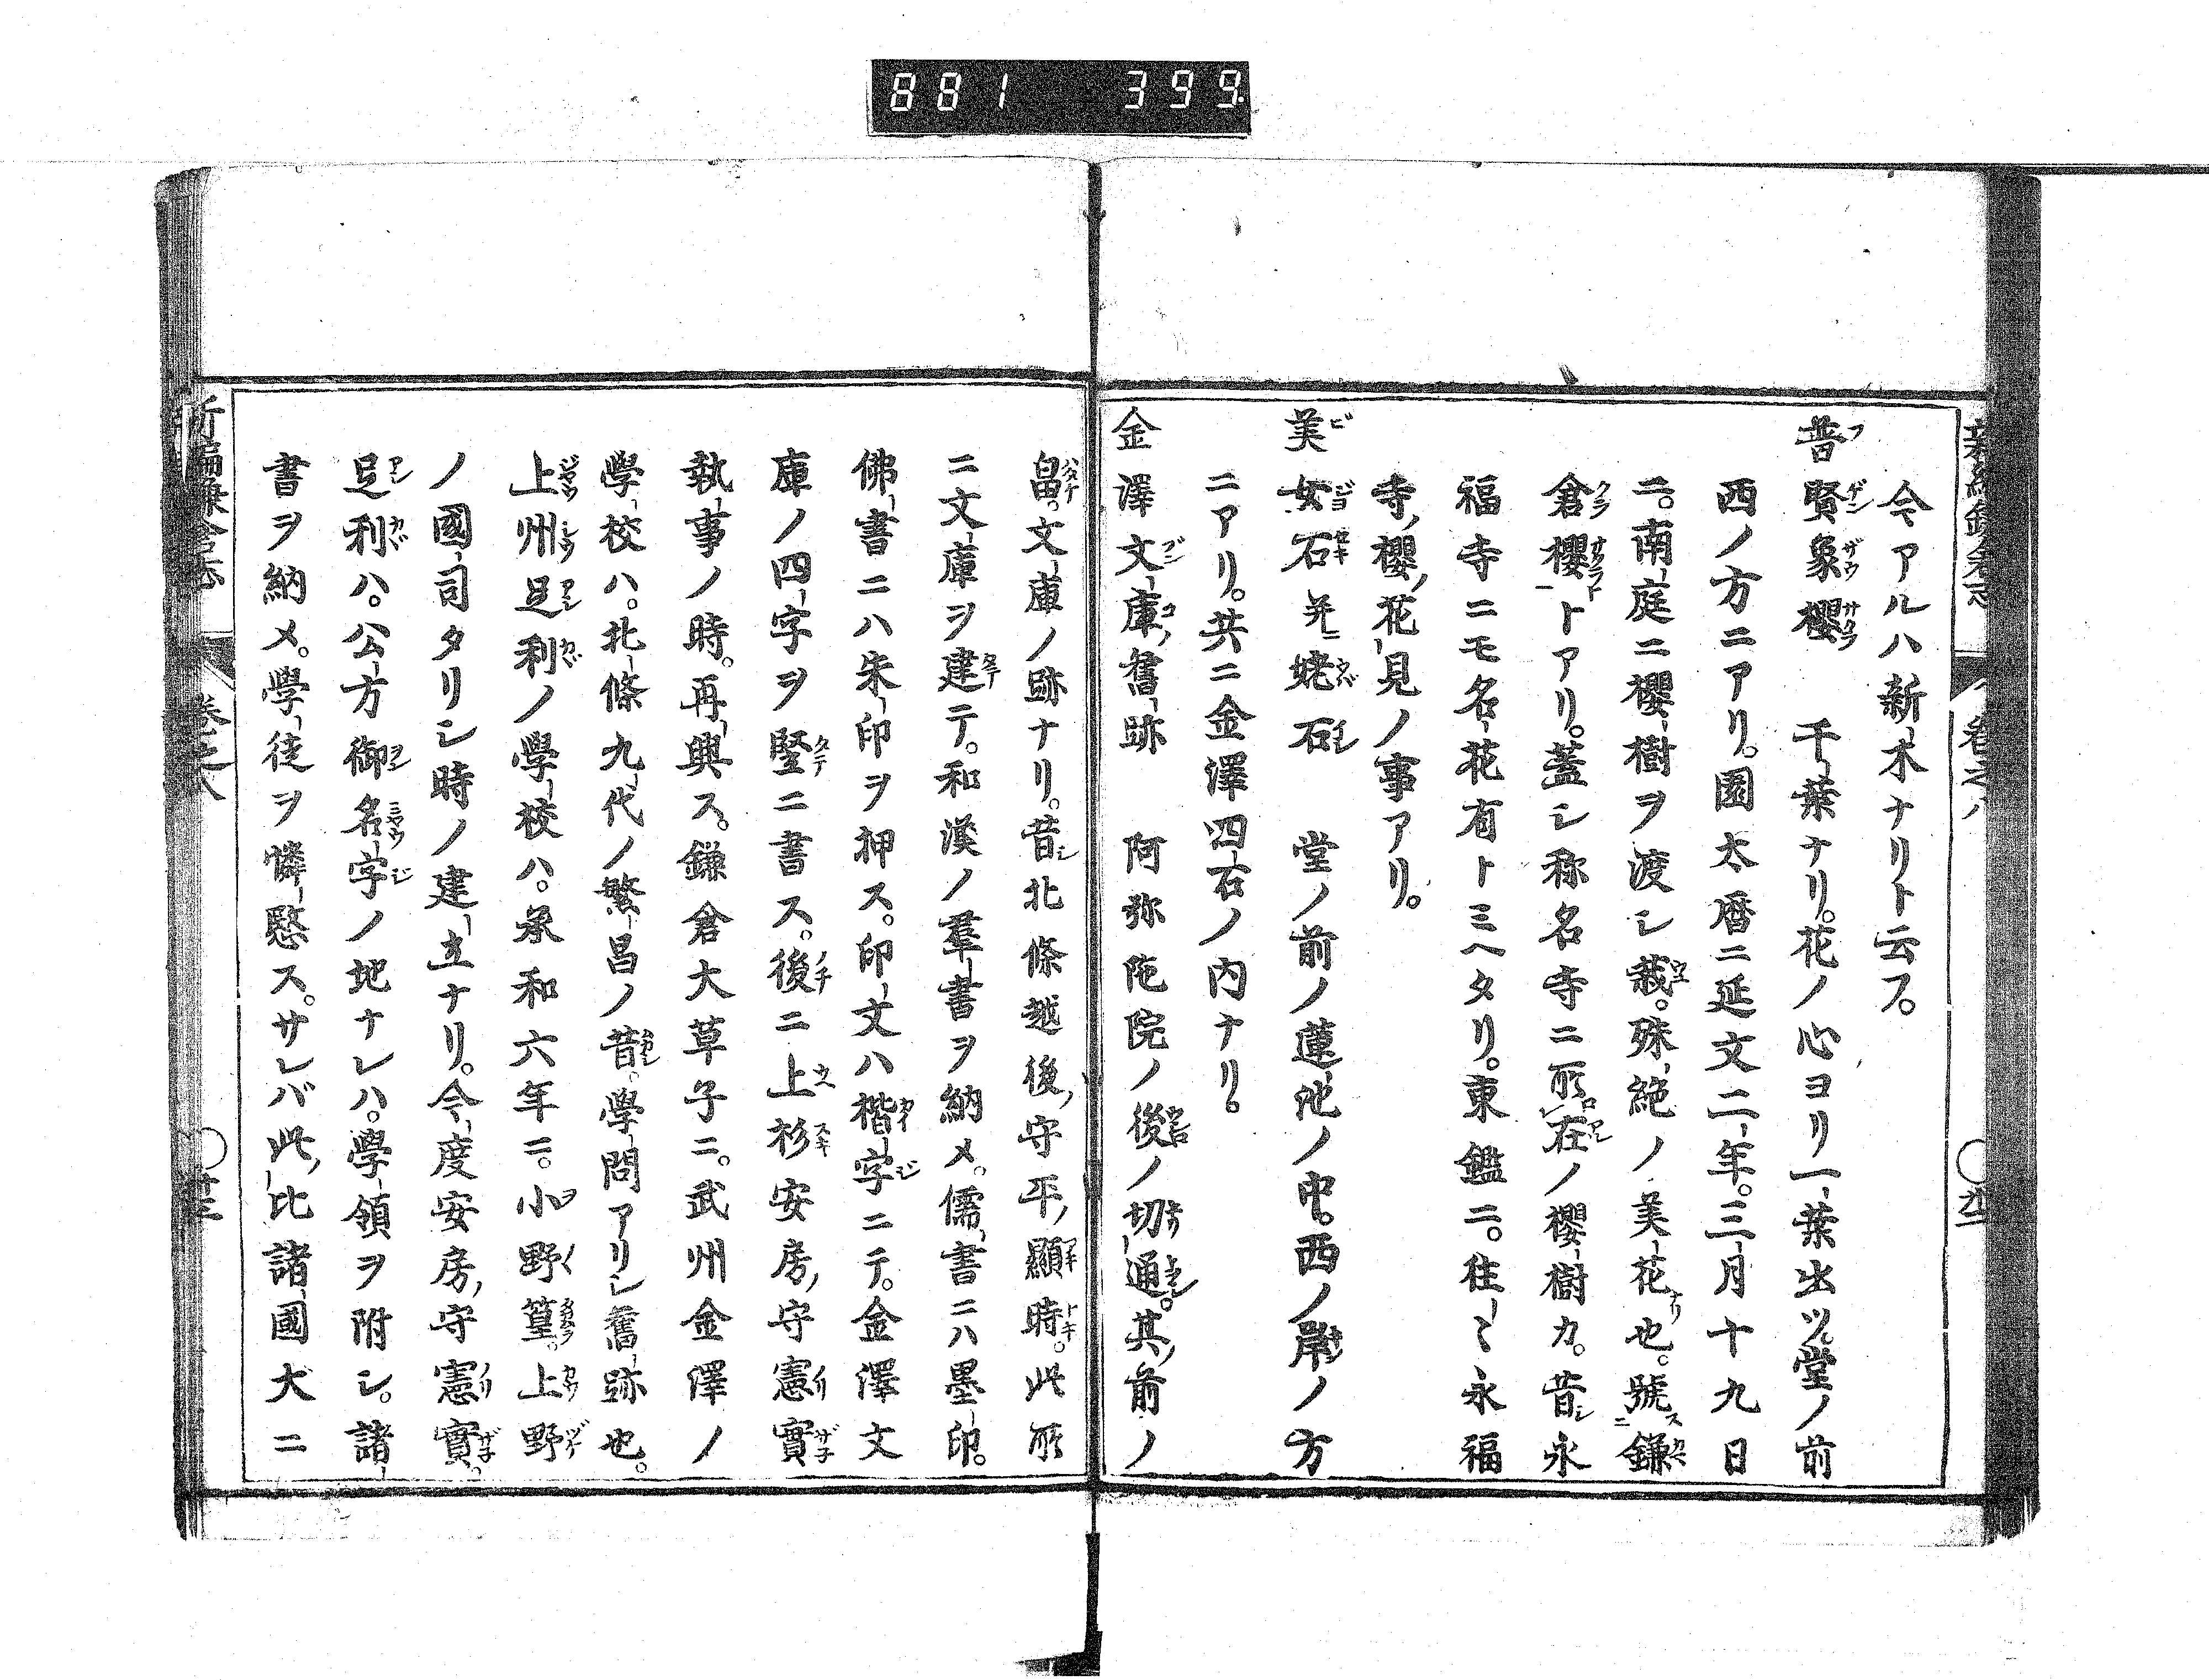 881 399
新編鎌倉志 卷之八
今アルハ新木ナリト云フ。
普賢象櫻 千葉ナリ。花ノ心ヨリ一葉出ツ。堂ノ前
西ノ方ニアリ。園太曆ニ延文二年。三月十九日
ニ。南庭ニ櫻樹ヲ渡シ栽。殊絶ノ美花也。號鎌
倉櫻トアリ。蓋シ称名寺ニ所在ノ櫻樹カ。昔シ永
福寺ニモ名花有トミヘタリ。東鑑ニ。往々永福
寺ノ櫻ノ花見ノ事アリ。
美女石并ニ姥石 堂ノ前ノ蓮池ノ中。西ノ岸ノ方
ニアリ。共ニ金澤四石ノ内ナリ。
金澤文庫舊跡 阿弥陀院ノ後ノ切通。其前ノ
畠。文庫ノ跡ナリ。昔シ北條越後守平顯時。此所
ニ文庫ヲ建テ。和漢ノ羣書ヲ納メ。儒書ニハ墨印。
佛書ニハ朱印ヲ押ス。印文ハ楷字ニテ。金澤文
庫ノ四字ヲ竪ニ書ス。後ニ上杉安房守憲實
執事ノ時。再興ス。鎌倉大草子ニ。武州金澤ノ
學校ハ。北條九代ノ繁昌ノ昔。學問アリシ舊跡也。
上州足利ノ學校ハ。承和六年ニ。小野篁。上野
ノ國司タリシ時ノ建立ナリ。今度安房守憲實。
足利ハ。公方御名字ノ地ナレハ。學領ヲ附シ。諸
書ヲ納メ。學徒ヲ憐愍ス。サレバ此比諸國大ニ
新編鎌倉志 卷之八